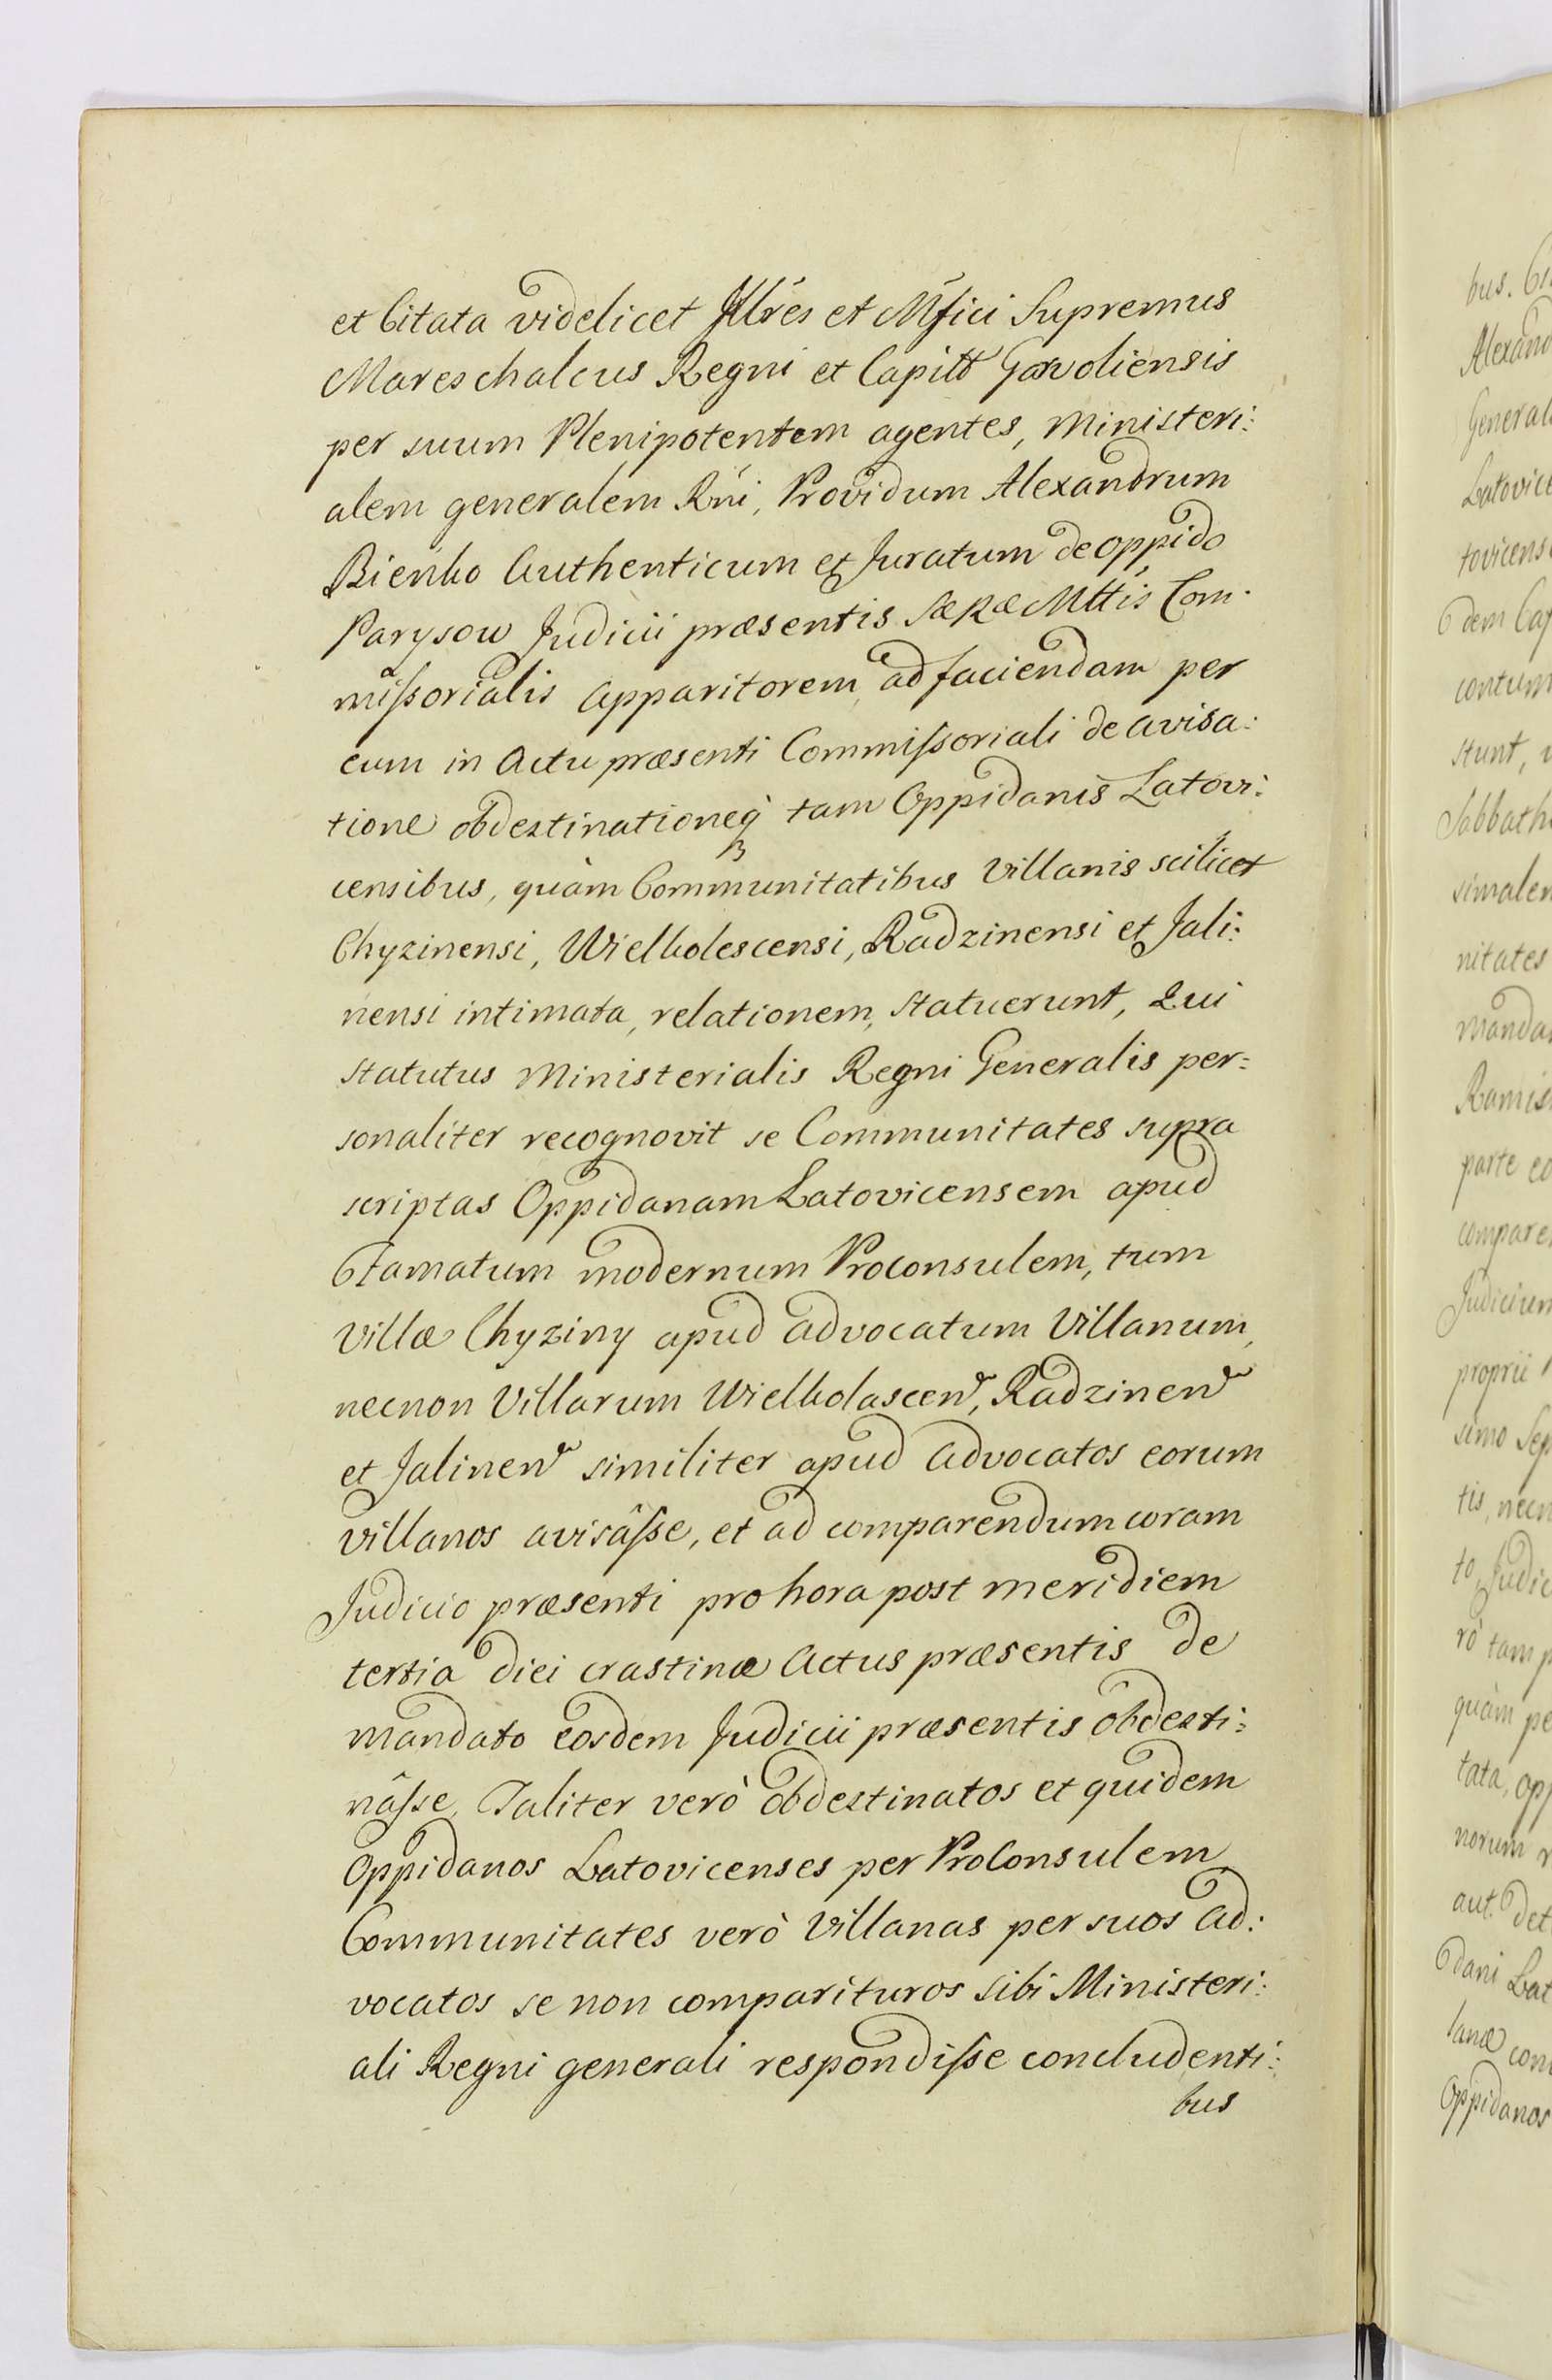 et Citata videlicet Jllres et Mfici Supremus
Mareschalcus Regni et Capitt Garvoliensis
per suum Plenipotentem agentes, Ministeri:
alem generalem Rni, Providum Alexandrum
Bienko Authenticum et Juratum de oppido
Parysow Judicii præsentis SæRæMttis Com:
miſsorialis Apparitorem, ad faciendam per
eum in Actu præsenti Commiſsoriali de avisa:
tione obdestinationeq̀ tam Oppidanis Latovi:
censibus, quàm Communitatibus Villanis scilicet
Chyzinensi, Wielholescensi, Radzinensi et Jali:
nensi intimata, relationem, statuerunt, Qui
statutus Ministerialis Regni Generalis per:
sonaliter recognovit se Communitates supra
scriptas Oppidanam Latovicensem apud
Famatum modernum Proconsulem, tum
Villæ Chyziny apud Advocatum Villanum,
necnon Villarum Wielholascen, Radzinen
et Jalinen similiter apud Advocatos eorum
villanos avisâſse, et ad comparendum coram
Judicio præsenti pro hora post meridiem
tertia diei crastinæ Actus præsentis de
mandato eosdem Judicii præsentis obdesti:
nâſse, Taliter verò obdestinatos et quidem
Oppidanos Latovicenses per ProConsulem
Communitates verò Villanas per suos Ad:
vocatos se non comparituros sibi Ministeri:
ali Regni generali respondiſse concludenti:
bus
bus.
Alexand
General
Latovice
tovicens
dem Cap
contum
stunt,
Sabbath
simalem
nitates
manda
Ramis
parte eo
compare
Judicium
proprii
simo Sep
tis, necn
to Judic
rò tam p
quàm pe
tata, opp
norum
aut. det
dani Lat
lanæ com
Oppidanos